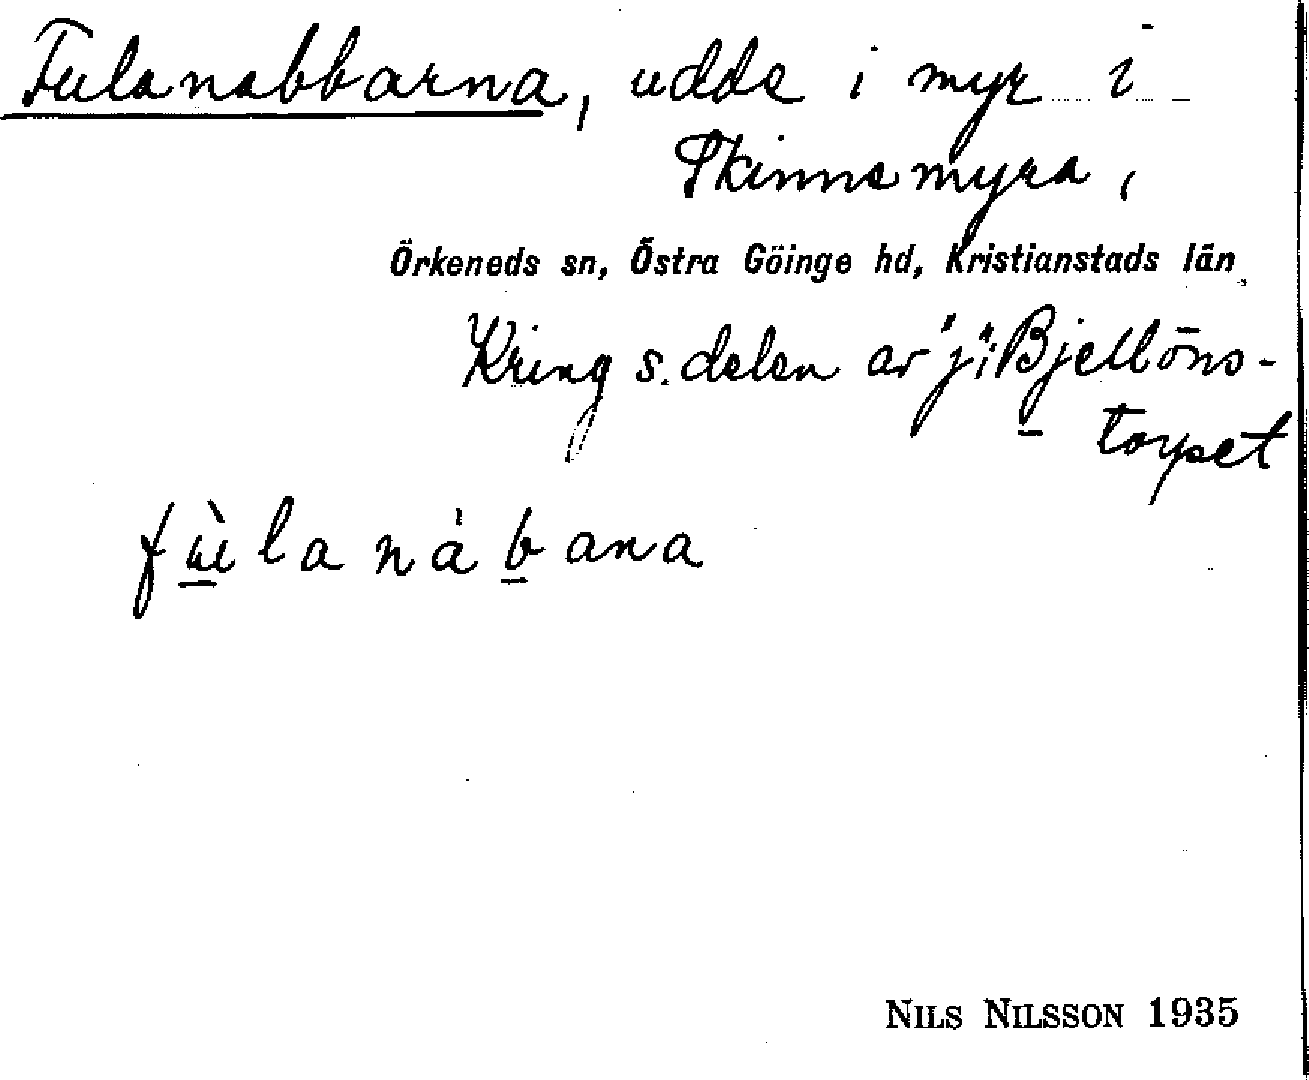 Fulanabbarna, udde i myr i
Skinnemyra,
Örkeneds sn, Östra Göinge hd, Kristianstads län,
Kring s. delen av "j" i Bjellöns-
torpet
fùlanábana
NILS NILSSON 1935